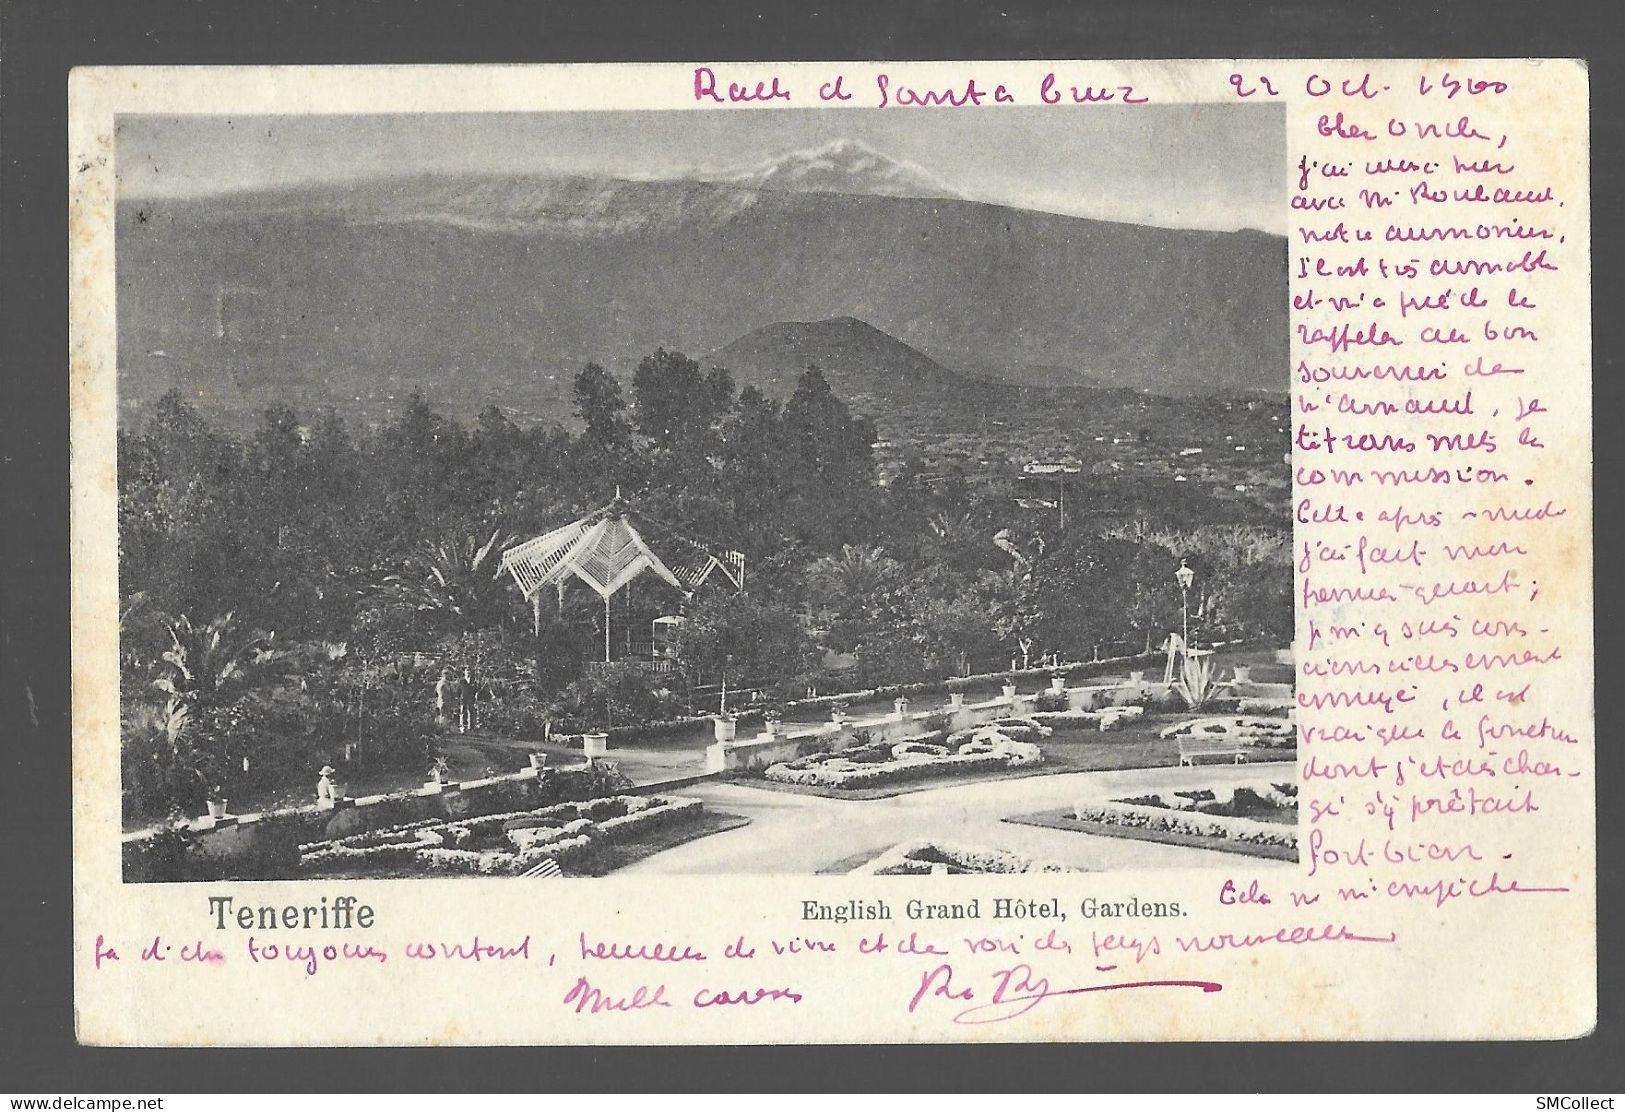 Rade de Santa Cruz 22 Oct. 1900
Cher Oncle,
j'ai causé hier
avec Mr Roulaud,
notre aumonier,
Il est très aimable
et m'a prié de le
rappeler au bon
souvenir de
Mr Arnaud, je
te transmets la
commission.
Cette après-midi
j'ai fait mon
premier quart;
puis que suis cons-
ciencieusement
ennuyé, il est
vrai que la fonction
dont j'étais char-
gé s'y prêtait
fort bien.
Cela ne m'empêche
pas d'être toujours content, heureux de vivre et de voir des pays nouveaux
Mille caresses
Teneriffe
English Grand Hôtel, Gardens.
SMCollect